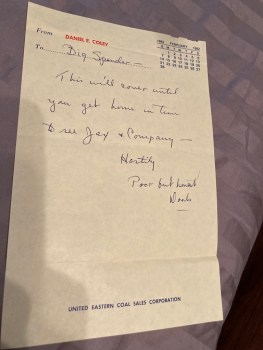 From DANIEL E. COLEY
To Big Spender —
This will cover until
you get home in time
to see Jax & Company —
Hastily
Poor but honest
UNITED EASTERN COAL SALES CORPORATION